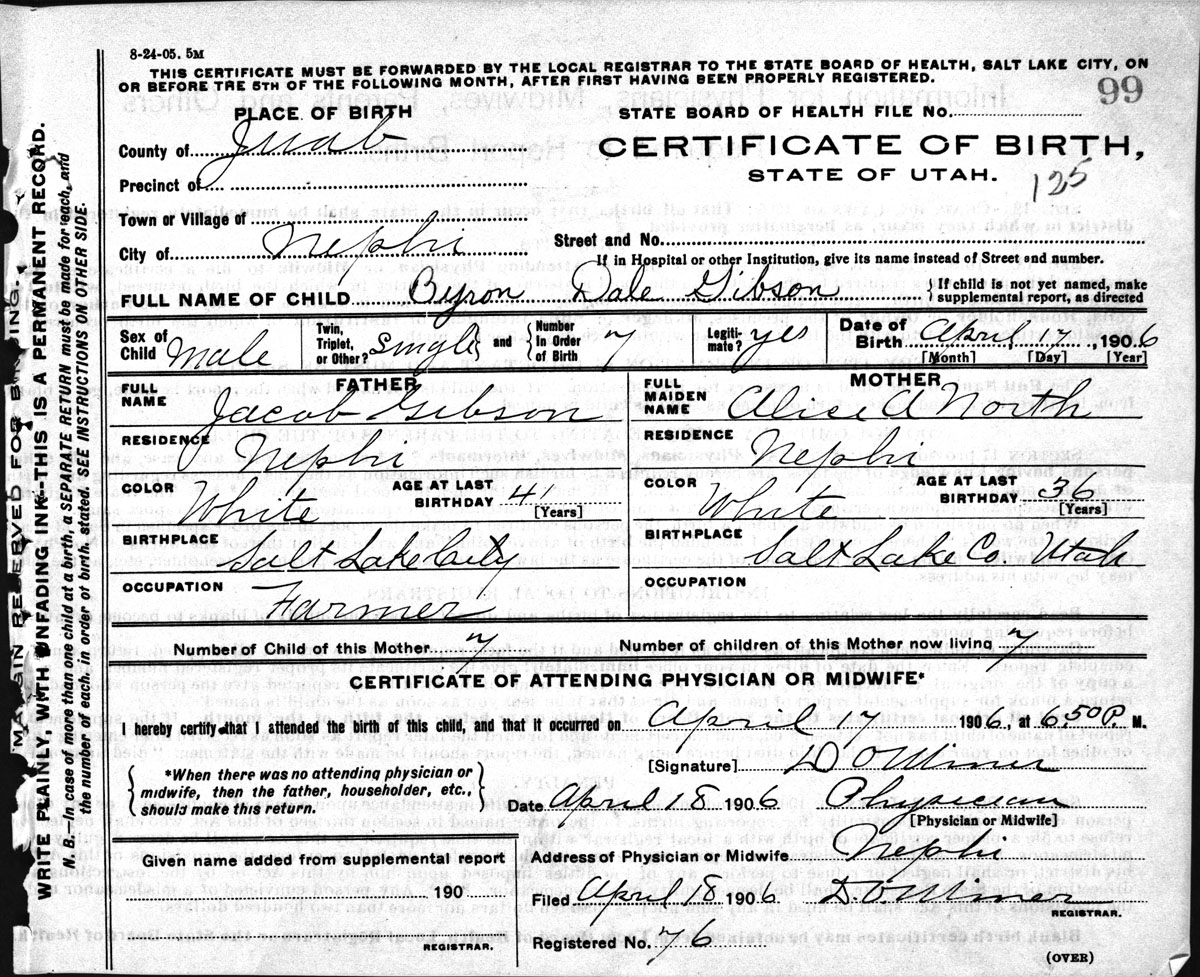 8-24-05. 5M
THIS CERTIFICATE MUST BE FORWARDED BY THE LOCAL REGISTRAR TO THE STATE BOARD OF HEALTH, SALT LAKE CITY, ON
OR BEFORE TRE 5TH OF THE FOLLOWING MONTH, AFTER FIRST HAVING BEEN PROPERLY REGISTERED.
99
PLACE OF BIRTH
STATE BOARD OF HEALTH FILE NO.
County of Juab
CERTIFICATE OF BIRTH,
STATE OF UTAH.
125
Precinct of
Town or Village of
City of Nephi
Street and No.
If in Hospital or other Institution, give its name instead of Street and number.
FULL NAME OF CHILD Byron Dale Gibson
If child is not yet named, make supplemental report, as directed
Sex of Child Male
Twin, Triplet, or Other? Single and Number In Order of Birth 7
Legitimate? yes
Date of Birth April 17, 1906
[Month] [Day] [Year]
FATHER
FULL NAME Jacob Gibson
RESIDENCE Nephi
COLOR White
AGE AT LAST BIRTHDAY 41 [Years]
BIRTHPLACE Salt Lake City
OCCUPATION Farmer
MOTHER
FULL MAIDEN NAME Alice A North
RESIDENCE Nephi
COLOR White
AGE AT LAST BIRTHDAY 36 [Years]
BIRTHPLACE Salt Lake Co. Utah
OCCUPATION
Number of Child of this Mother 7
Number of children of this Mother now living 7
CERTIFICATE OF ATTENDING PHYSICIAN OR MIDWIFE*
I hereby certify that I attended the birth of this child, and that it occurred on April 17 1906. at 650 P. M.
*When there was no attending physician or
midwife, then the father, householder, etc.,
should make this return.
[Signature] D O Miner
Date April 18 1906 Physician
[Physician or Midwife]
Given name added from supplemental report
190
REGISTRAR.
Address of Physician or Midwife Nephi
Filed April 18 1906 D. O Miner
REGISTRAR.
Registered No. 76
(OVER)
MARGIN RESERVED FOR BINDING.
WRITE PLAINLY, WITH UNFADING INK-THIS IS A PERMANENT RECORD.
N. B.-In case of more than one child at a birth, a SEPARATE RETURN must be made for each, and
the number of each, in order of birth, stated. SEE INSTRUCTIONS ON OTHER SIDE.